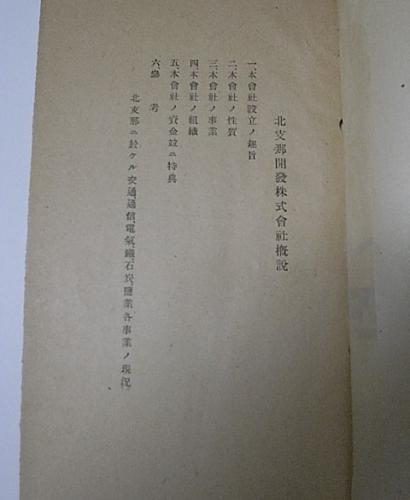 北支那開發株式會社概說
一、本會社設立ノ趣旨
二、本會社ノ性質
三、本會社ノ事業
四、本會社ノ組織
五、本會社ノ資金竝ニ特典
六、參考
北支那ニ於ケル交通、通信、電氣、鐵、石炭、鹽業各事業ノ現況